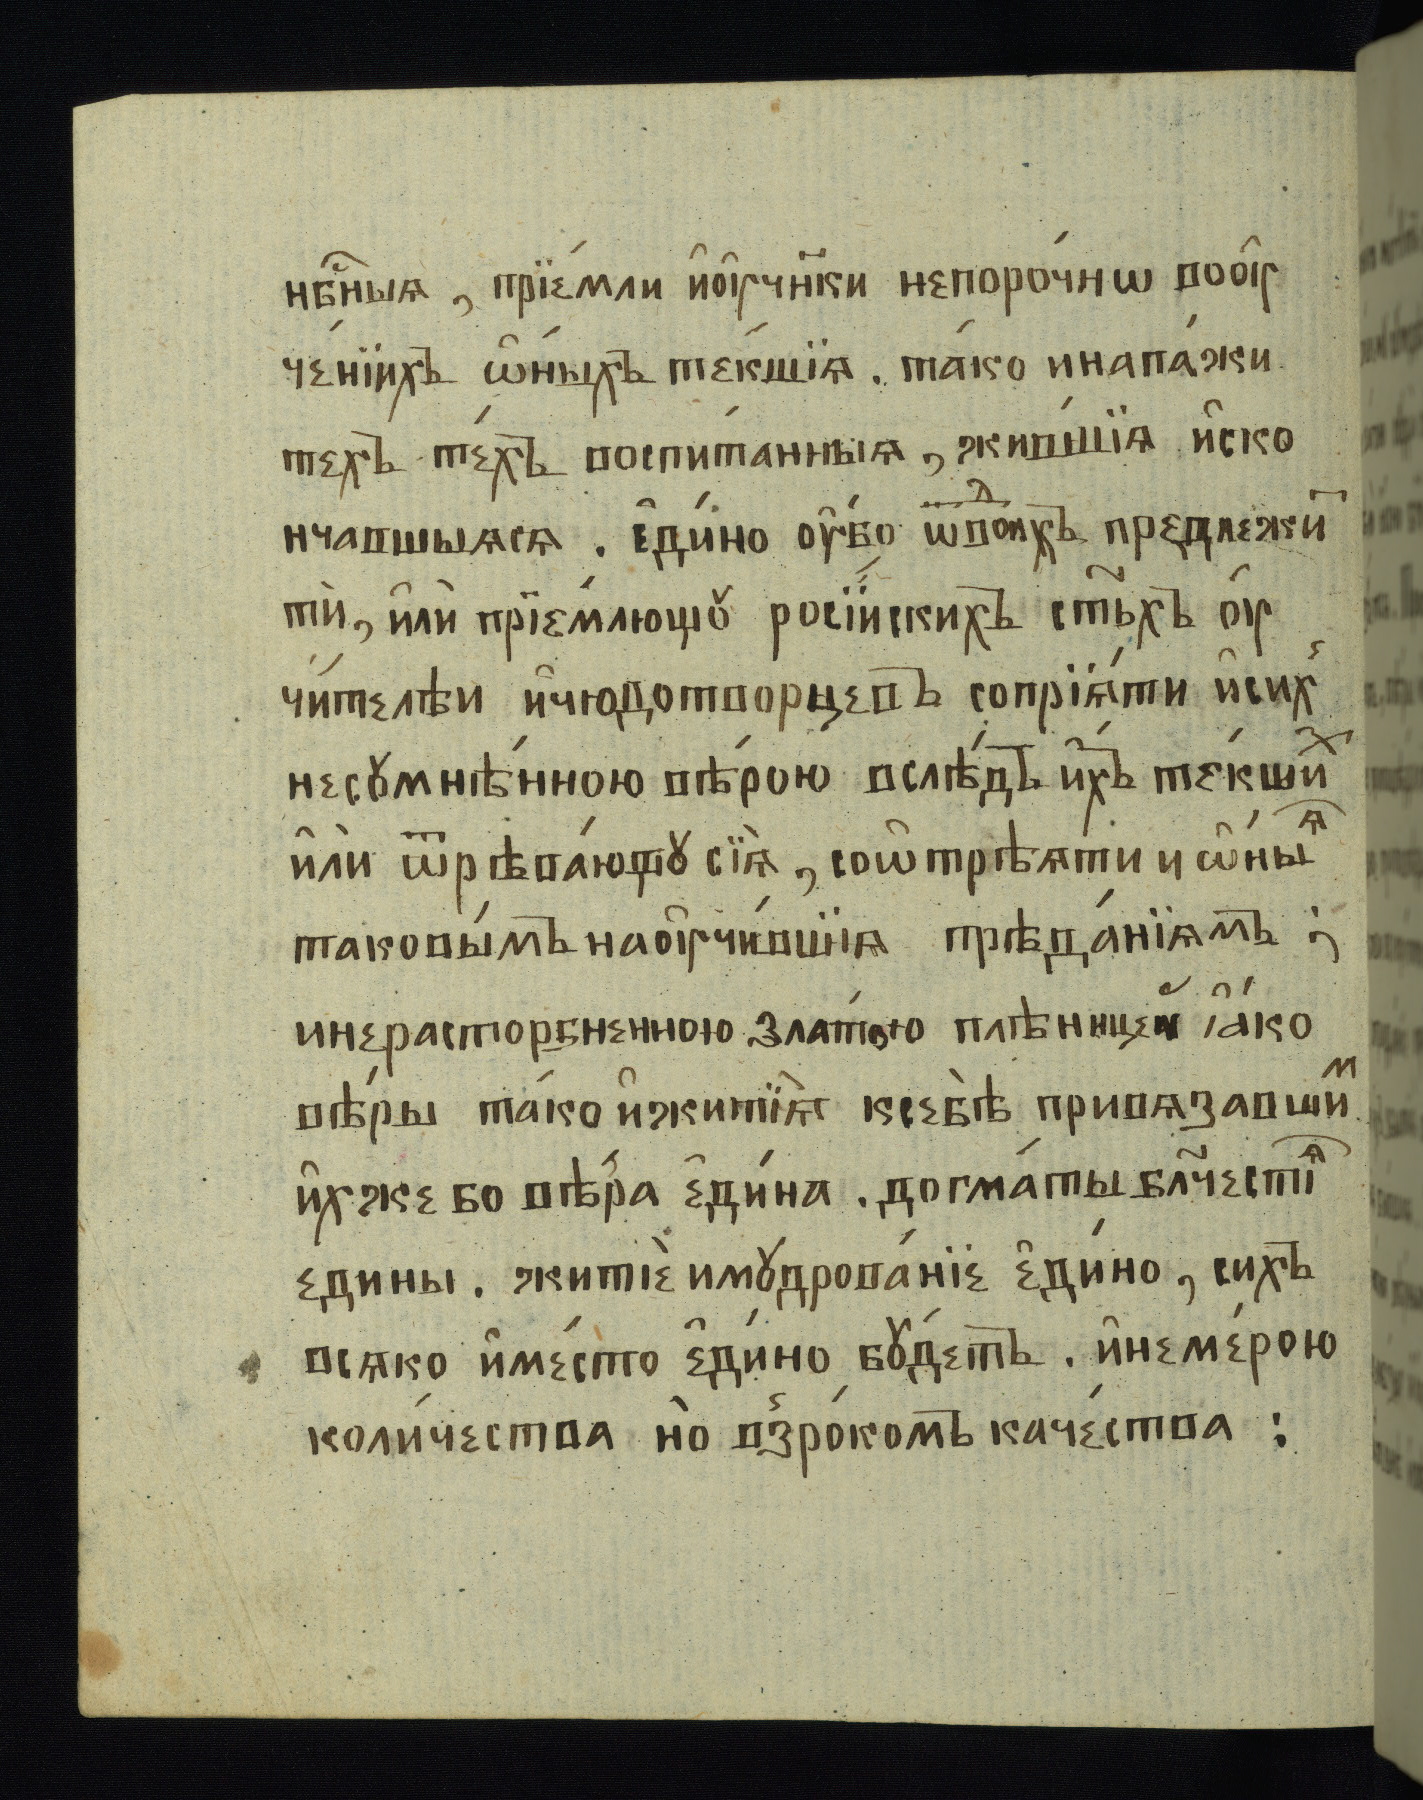 нб҃ныѧ, прїе́мли и҆оу҆чн҃ки непоро́чнѡ вооу҆
че́нїихъ ѡ҆́ныхъ те́кшїѧ. та́ко инапа́жи
техъ те́хъ воспи́танныѧ, жи́вшїѧ и҆ско
нчавшыѧсѧ. є҆ди́но оу҆́бо предлежи
ти̇̀, и҆лѝ прїе́млющꙋ росі́йскихъ ст҃ы́хъ оу҆
чи́телѣи и҆чюдотворцевъ сопрїѧ́ти и҆сихⷭ
несꙋмнѣ́нною вѣ́рою вслѣ́дъ и҆́хъ те́кшиⷯ
и҆лѝ ѿрѣва́ющꙋ сїѧ̀, соѿтрѣѧти и ѡ҆́ныⷽ
таковы́мъ наоу҆чи́вшїѧ прѣда́нїѧмъ ;
инерасторгненною злато́ю плѣницеи̇ ꙗ҆́ко
вѣ́ры та́ко и҆житїѧ̀ ксебѣ̀ привѧзавшиⷨ
и҆́хже бо вѣ́ра є҆ди́на. догма́ты бл҃честїѧ
едины. житїѐ имꙋдрова́нїе є҆ди́но, сихъ
всѧко и҆ме́сто є҆ди́но бꙋ́детъ. и҆неме́рою
коли́чества но̀ в̾зро́комъ каче́ства :